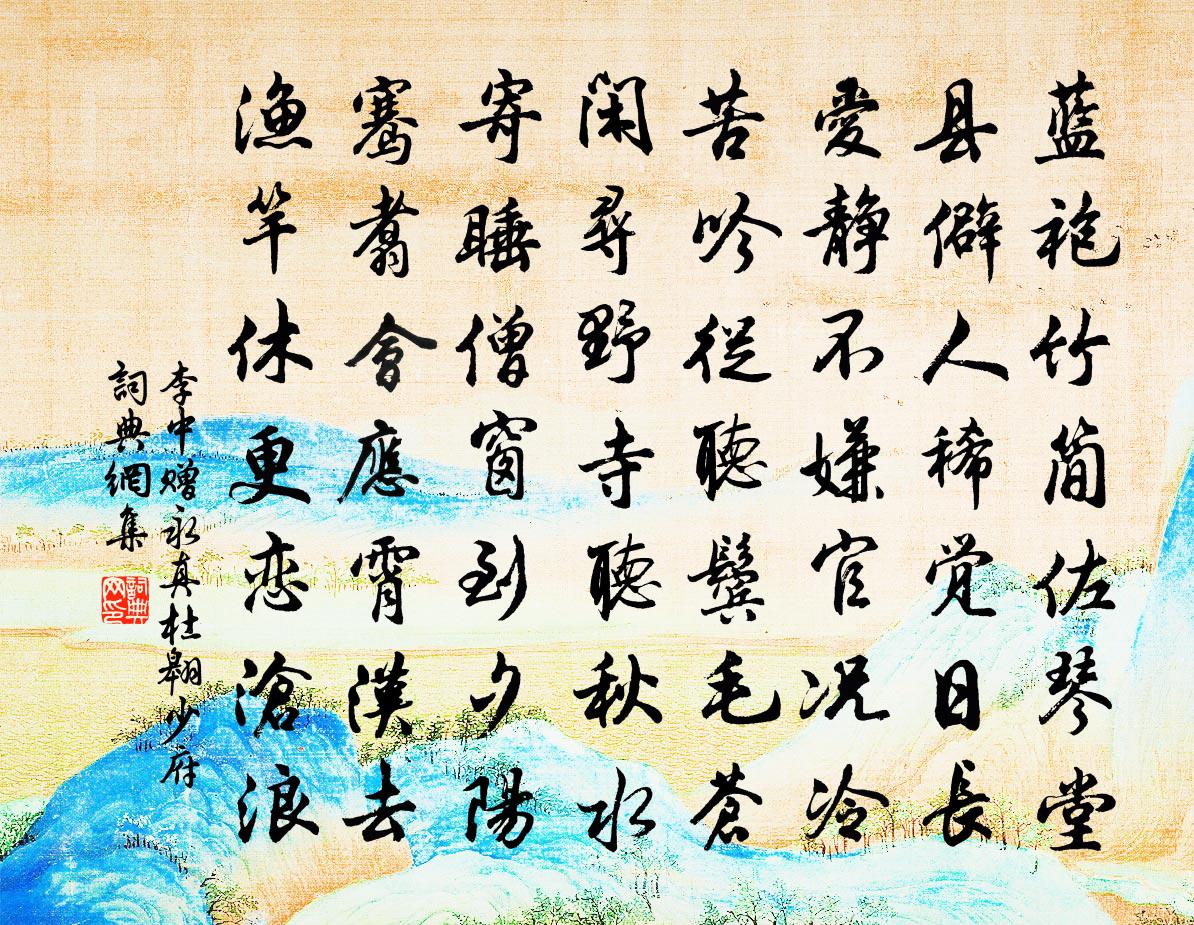 藍袍竹简佐琴堂
县僻人稀觉日長
愛静不嫌官况冷
苦吟從聽鬢毛蒼
闲尋野寺聽秋水
寄睡僧窗到夕陽
骞翥會應霄漢去
漁竿休更恋滄浪
李中赠永真杜翱少府
詞典網集
詞典网印